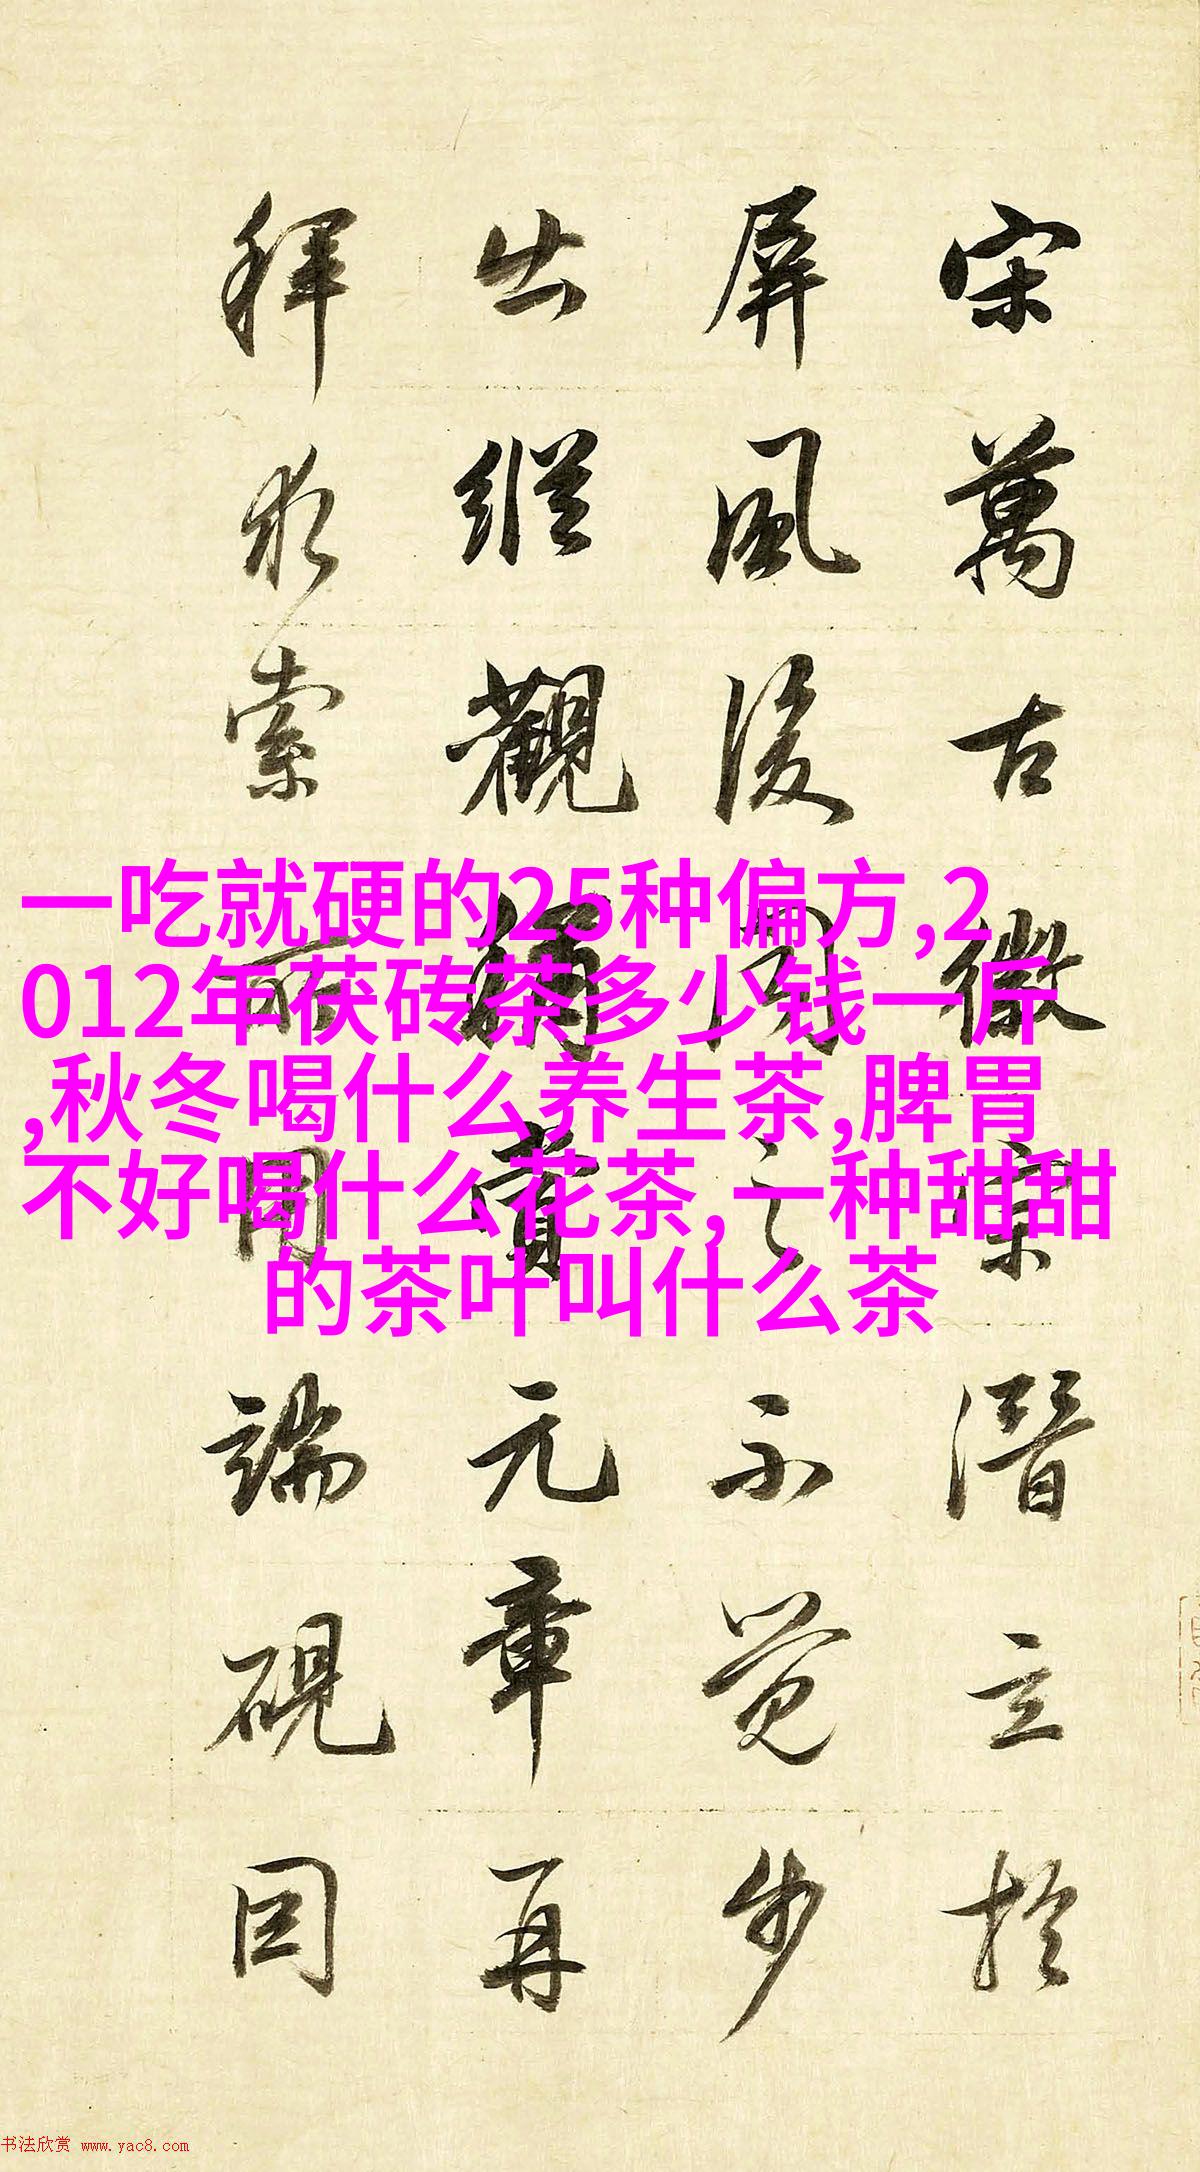 宋萬古徽宗潛立於
屏風後聞之不覺步
出縱觀稱賞元章再
拜求索所用端硯因
一吃就硬的25种偏方,2
012年茯砖茶多少钱一斤
,秋冬喝什么养生茶,脾胃
不好喝什么花茶,一种甜甜
的茶叶叫什么茶
书法欣赏 www.yac8.com